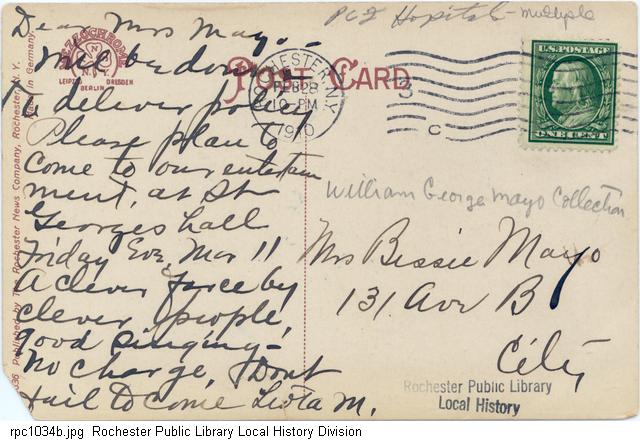 PCI Hospitals - multiple
Dear Mrs Mayo -
will be down -
to deliver policy
Please plan to
come to our entertain
ment, at St
Georges hall
Friday Eve, Mar 11
A clever farce by
clever people,
good singing -
No charge, Dont
fail to come Leota M.
EZZOCHROM
N
N.Y.
LEIPZIG DRESDEN
BERLIN
Made in Germany.
Published by The Rochester News Company, Rochester, N. Y.
POST CARD
ROCHESTER N.Y.
FEB 28
10 PM
1910
3
C
U.S. POSTAGE
ONE CENT
William George Mayo Collection
Mrs Bessie Mayo
131 Ave B
City
Rochester Public Library
Local History
rpc1034b.jpg Rochester Public Library Local History Division